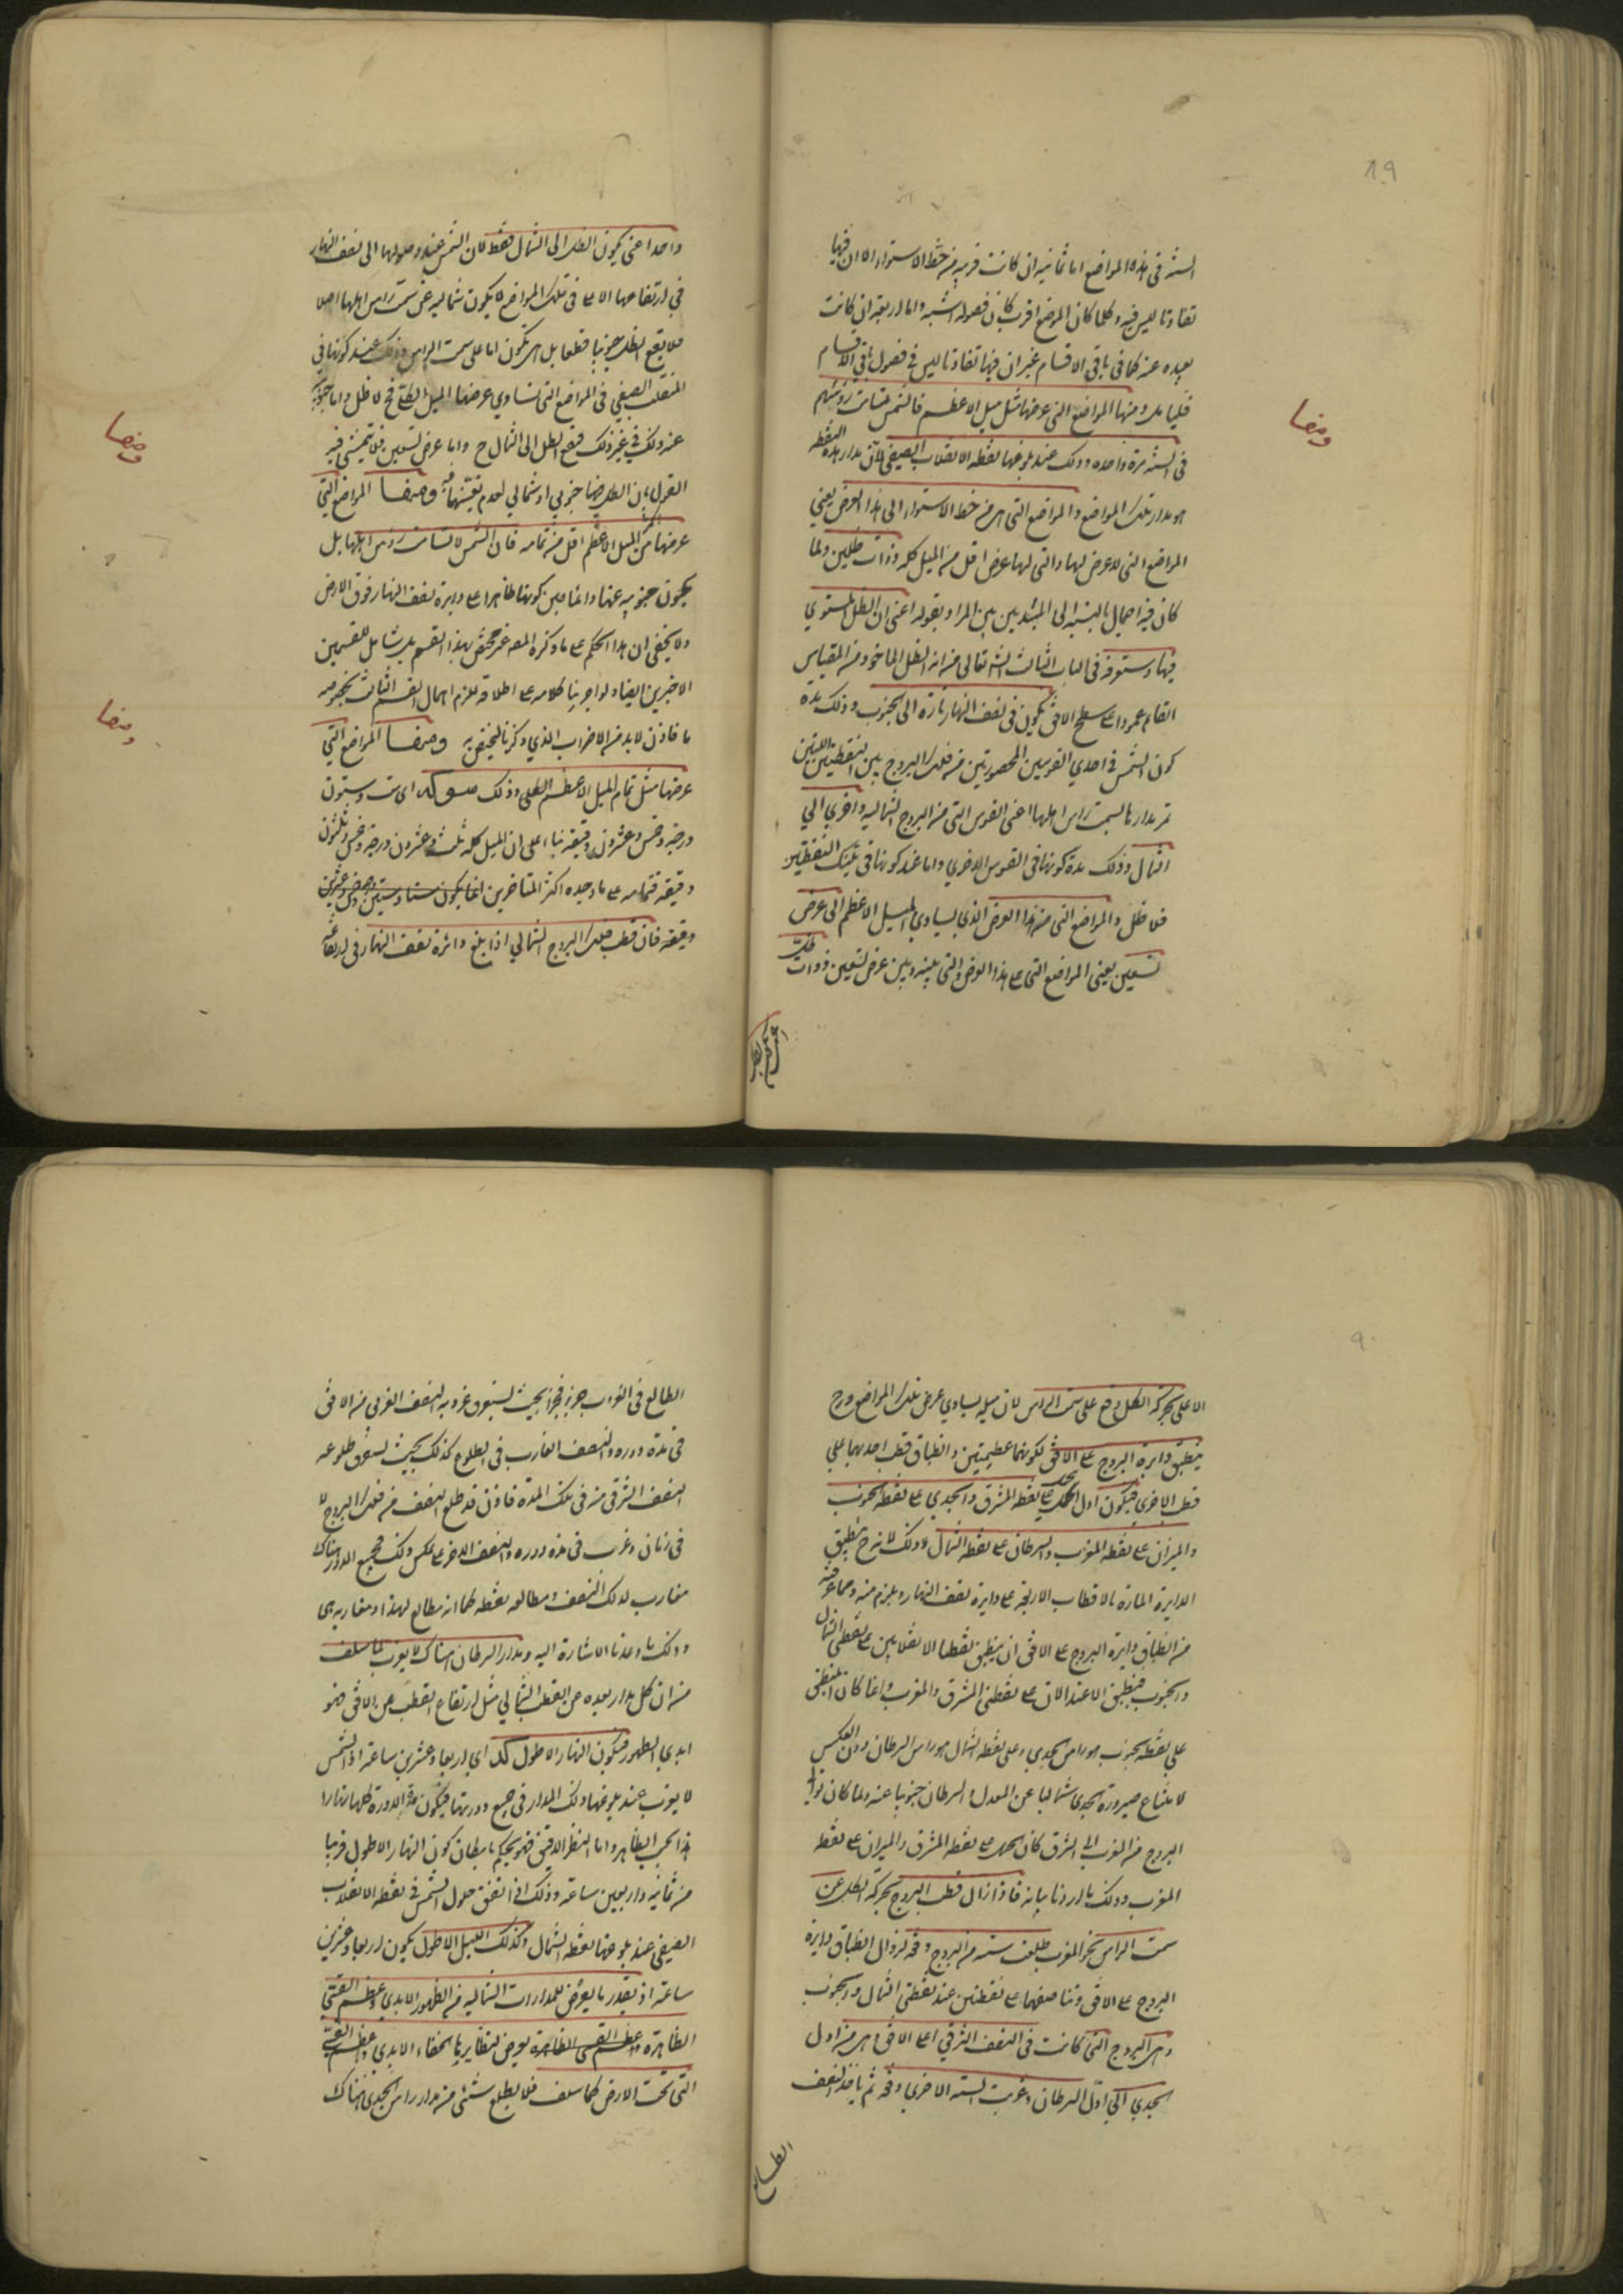 ٨٩
السنة في هذه المواضع اما ثمانية ان كانت قريبة من خط الاستواء الا ان فيها
تفاوتا ليس فيه وكلما كان الموضع اقرب كان فصوله اشبه واما اربعة ان كانت
بعيده عنه كما في باقي الاقسام غير ان فيها تفاوتا ليس في فصول باقي الاقسام
ومنها المواضع التي عرضها مثل ميل الاعظم فالشمس تسامت رؤسهم
ومنها
في السنة مرة واحده وذلك عند بلوغها نقطه الانقلاب الصيفي لان مدار هذه النقطه
هو مدار تلك المواضع والمواضع التي هي من خط الاستواء الى هذا العرض يعني
المواضع التي لا عرض لها والتي لها عرض اقل من الميل كله ذوات ظلين ولما
كان فيه اجمال بالنسبه الى المبتدئين بين المراد بقوله اعني ان الظل المستوي
فيها وستعرفه في الباب الثالث انشه تعالى من انه الظل الماخوذ من المقياس
القائم عمودا على سطح الافق يكون في نصف النهار تارة الى الجنوب وذلك مدة
كون الشمس في احدي القوسين المحصورتين من فلك البروج بين النقطتين اللتين
تمر مدارهما بسمت راس اهلها اعني القوس التي من البروج الشماليه واخري الي
الشمال وذلك مدة كونها في القوس الاخري واما عند كونها في تينك النقطتين
فلا ظل والمواضع التي من هذا العرض الذي يساوي الميل الاعظم الى عرض
تسعين يعني المواضع التي على هذا العرض والتي بينه وبين عرض تسعين ذوات ظل
واحدا اعني يكون الظل الى الشمال فقط لان الشمس عند وصولها الى نصف النهار
في ارتفاعها الاعلى في تلك المواضع لا يكون شماليه عن سمت راس اهلها اصلا
فلا يقع الظل جنوبيا قطعا بل اما على سمت الراس وذلك عند كونها في
المنقلب الصيفي في المواضع التي تساوي عرضها الميل الكلي فح لا ظل واما جنوبيه
عنه وذلك في غير ذلك فيقع الظل الى الشمال ح واما عرض تسعين فلا يتمشى فيه
القول بان الظل فيها جنوبي او شمالي لعدم تعينهما فيه ومنها المواضع التي
ومنها
عرضها اكثر من الميل الاعظم اقل من تمامه فان الشمس لا تسامت رؤس اهلها بل
يكون جنوبيه عنها دائما حين كونها ظاهرا على دايرة نصف النهار فوق الارض
ولا يخفى ان هذا الحكم على ما ذكره المص غير مختص بهذا القسم بل شامل للقسمين
الاخيرين ايضا ولو اجرينا كلامه على اطلاقه يلزم اهمال القسم الثالث بخصوصه
فاذن لا بد من الاضراب الذي ذكرنا ليختص به ومنها المواضع التي
ومنها
عرضها مثل تمام الميل الاعظم الكلي وذلك سو كه اي ست وستون
درجة وخمس وعشرون دقيقه بناء على ان الميل كله ثلث وعشرون درجة وخمس وثلثون
دقيقه فتمامه على ما وجده اكثر المتاخرين انما يكون ستا وستين درجة وعشرين
دقيقه فان قطب فلك البروج الشمالي اذا بلغ دائرة نصف النهار في ارتفاعه
٩٠
الاعلى بحركة الكل وقع على سمت الراس لان ميله يساوي عرض تلك المواضع وح
ينطبق دايرة البروج على الافق لكونهما عظيمتين وانطباق قطب احديهما على
قطب الاخري فيكون اول الحمل على نقطه المشرق والجدي على نقطه الجنوب
والميزان على نقطه المغرب والسرطان على نقطه الشمال وذلك لانه ح ينطبق
الدايرة المارة بالاقطاب الاربعة على دايرة نصف النهار ويلزم منه ومما عرفته
من انطباق دايرة البروج على الافق ان ينطبق نقطتا الانقلابين على نقطتي الشمال
والجنوب فينطبق الاعتدالان على نقطتي المشرق والمغرب وانما كان المنطبق
على نقطه الجنوب هو راس الجدي وعلى نقطه الشمال هو راس السرطان دون العكس
لامتناع صيرورة الجدي شماليا عن المعدل والسرطان جنوبيا عنه ولما كان توالي
البروج من المغرب الى المشرق كان الحمل على نقطه المشرق والميزان على نقطه
المغرب وذلك ما اردنا بيانه فاذا زال قطب البروج بحركة الكل عن
سمت الراس نحو المغرب طلعت ستة من البروج دفعه لزوال انطباق دايرة
البروج على الافق وتناصفهما على نقطتين عند نقطتي الشمال والجنوب
وهي البروج التي كانت في النصف الشرقي اعلى الافق اي من اول
الجدي الى اول السرطان وغربت الستة الاخري دفعه ثم ياخذ النصف
الطالع
الطالع في الغروب جزء فجزء بحيث يستوفي غروبه النصف الغربي من الافق
في مدة دوره والنصف الغارب في الطلوع كذلك بحيث يستوفي طلوعه
النصف الشرقي منه في تلك المدة فاذن قد طلع النصف من فلك البروج لا
في زمان وغرب في مدة دوره والنصف الاخر على عكس ذلك فجميع الدور هناك
مغارب لذلك النصف ومطالعه نقطه كما انه مطالع لهذا ومغاربه هي
وذلك ما وعدنا الاشارة اليه ومدار السرطان هناك لا يغرب لما سلف
من ان كل مدار بعده عن القطب الشمالي مثل ارتفاع القطب عن الافق فهو
ابدي الظهور فيكون النهار الاطول كد اي اربعا وعشرين ساعة اذ الشمس
لا يغرب عند بلوغها ذلك المدار في جميع دورتها فيكون مدة الدورة كلها نهارا
هذا بحسب الظاهر واما النظر الدقيق فهو يحكم بامكان كون النهار الاطول قريبا
من ثمانية واربعين ساعة وذلك اذا اتفق حلول الشمس في نقطه الانقلاب
الصيفي عند بلوغها نقطه الشمال وكذلك الليل الاطول يكون اربعا وعشرين
ساعة اذ بقدر ما يعرض للمدارات الشماليه من الظهور الابدي وعظم القسي
الظاهرة يعرض لنظايرها الخفاء الابدي وعظم القسي
التي تحت الارض كما سلف فلا يطلع شئ من مدار راس الجدي هناك